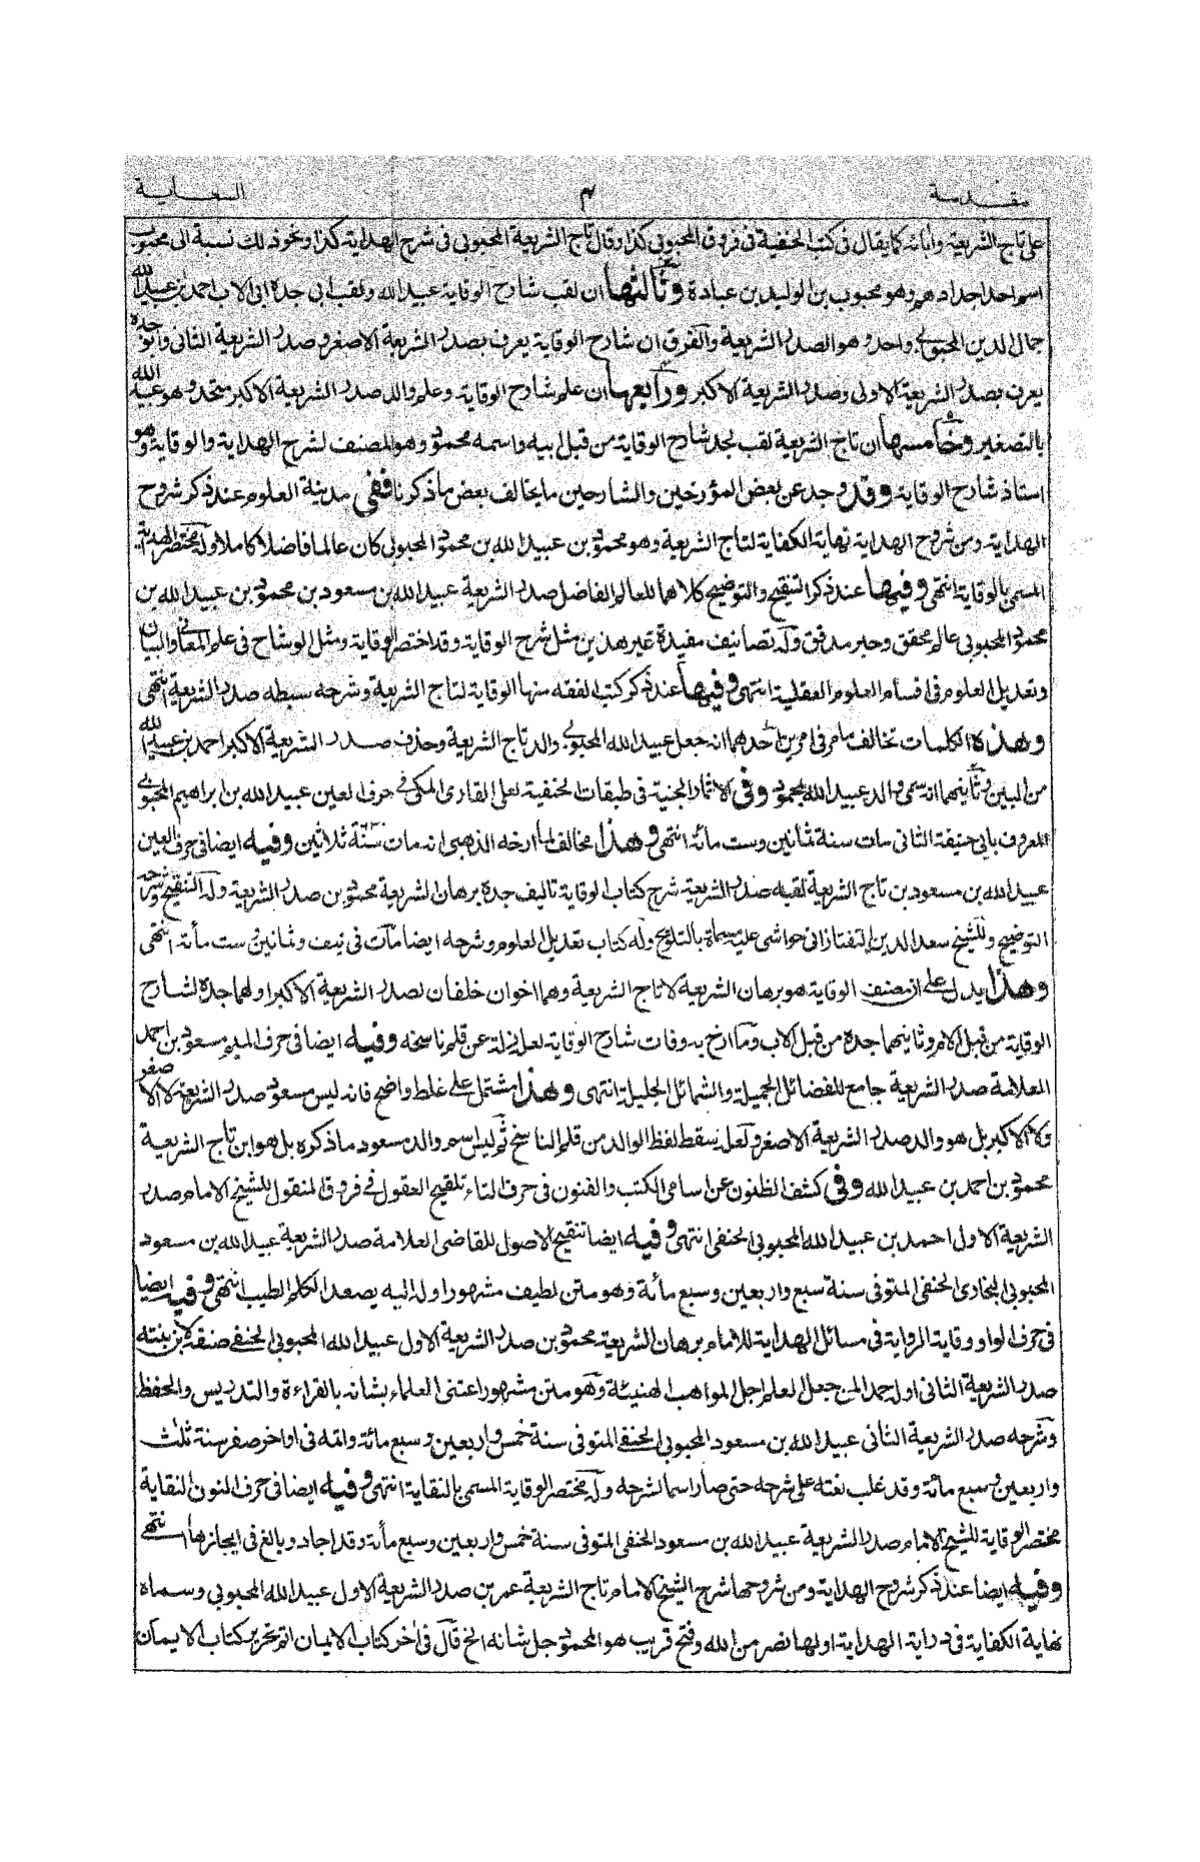 مقدمة ٣ السعاية
على تاج الشريعة وآبائه كما يقال فى كتب الحنفية فى فروق المحبوبى كذا وقال تاج الشريعة المحبوبى فى شرح الهداية كذا ونحو ذلك نسبة الى محبوب
اسم احد اجدادهم وهو محبوب بن الوليد بن عبادة وثالثها ان لقب شارح الوقاية عبيد الله ولقب ابى جده ابى الاب احمد بن عبيد الله
جمال الدين المحبوبى واحد وهو الصدر الشريعة والفرق ان شارح الوقاية يعرف بصدر الشريعة الاصغر وصدر الشريعة الثانى وابو جده
يعرف بصدر الشريعة الاولى وصدر الشريعة الاكبر ورابعها ان علم شارح الوقاية وعلم والد صدر الشريعة الاكبر متحد وهو عبيد الله
بالتصغير وخامسها ان تاج الشريعة لقب لجد شارح الوقاية من قبل ابيه واسمه محمود وهو المصنف لشرح الهداية والوقاية وهو
استاذ شارح الوقاية وقد وجد عن بعض المؤرخين والشارحين ما يخالف بعض ما ذكرنا ففى مدينة العلوم عند ذكر شروح
الهداية ومن شروح الهداية نهاية الكفاية لتاج الشريعة وهو محمود بن عبيد الله بن محمود المحبوبى كان عالما فاضلا كاملا وله مختصر الهداية
المسمى بالوقاية انتهى وفيها عند ذكر التنقيح والتوضيح كلاهما للعالم الفاضل صدر الشريعة عبيد الله بن مسعود بن محمود بن عبيد الله بن
محمود المحبوبى عالم محقق وحبر مدقق وله تصانيف مفيدة غير هذين مثل شرح الوقاية وقد اختصر الوقاية ومثل الوشاح فى علم المعانى والبيان
وتعديل العلوم فى اقسام العلوم العقلية انتهى وفيها عند ذكر كتب الفقه منها الوقاية لتاج الشريعة وشرحه سبطه صدر الشريعة انتهى
وهذه الكلمات تخالف ما مر فى امرين احدهما انه جعل عبيد الله المحبوبى والد تاج الشريعة وحذف صدر الشريعة الاكبر احمد بن عبيد الله
من البين وثانيهما انه سمى والد عبيد الله بمحمود وفى الاثمار الجنية فى طبقات الحنفية لعلى القارى المكى فى حرف العين عبيد الله بن ابراهيم المحبوبى
المعروف بابى حنيفة الثانى مات سنة ثمانين وست مائة انتهى وهذا مخالف لما ارخه الذهبى انه مات سنة ثلاثين وفيه ايضا فى حرف العين
عبيد الله بن مسعود بن تاج الشريعة لقبه صدر الشريعة شرح كتاب الوقاية تاليف جده برهان الشريعة محمود بن صدر الشريعة وله التنقيح وشرحه
التوضيح وللشيخ سعد الدين التفتازانى حواشى عليه مسماة بالتلويح وله كتاب تعديل العلوم وشرحه ايضا مات فى نيف وثمانين وست مأته انتهى
وهذا يدل على ان مصنف الوقاية هو برهان الشريعة لا تاج الشريعة وهما اخوان خلفان لصدر الشريعة الاكبر اولهما جدة الشارح
الوقاية من قبل الام وثانيهما جده من قبل الاب وما ارخ به وفات شارح الوقاية لعل زلة عن قلم ناسخه وفيه ايضا فى حرف الميم مسعود بن احمد
العلامة صدر الشريعة جامع للفضائل الجميلة والشمائل الجليلة انتهى وهذا مشتمل على غلط واضح فانه ليس مسعود صدر الشريعة لا الاصغر
ولا الاكبر بل هو والد صدر الشريعة الاصغر ولعل سقط لفظ الوالد من قلم الناسخ ثم ليس اسم والد مسعود ما ذكره بل هو ابن تاج الشريعة
محمود بن احمد بن عبيد الله وفى كشف الظنون عن اسامى الكتب والفنون فى حرف التاء تلقيح العقول فى فروق المنقول للشيخ الامام صدر
الشريعة الاول احمد بن عبيد الله المحبوبى الحنفى انتهى وفيه ايضا تنقيح الاصول للقاضى العلامة صدر الشريعة عبيد الله بن مسعود
المحبوبى البخارى الحنفى المتوفى سنة سبع واربعين وسبع مأئة وهو متن لطيف مشهور اوله اليه يصعد الكلم الطيب انتهى وفيه ايضا
فى حرف الواو وقاية الرواية فى مسائل الهداية للامام برهان الشريعة محمود بن صدر الشريعة الاول عبيد الله المحبوبى الحنفى صنفه لابن بنته
صدر الشريعة الثانى اوله حمد المن جعل العلم اجل المواهب الهنيئة وهو متن مشهور اعتنى العلماء بشانه بالقراءة والتدريس والحفظ
وشرحه صدر الشريعة الثانى عبيد الله بن مسعود المحبوبى الحنفى المتوفى سنة خمس واربعين وسبع مائة واتمه فى اواخر صفر سنة ثلث
واربعين وسبع مأئة وقد غلب نعته على شرحه حتى صار اسما لشرحه وله مختصر الوقاية المسمى بالنقاية انتهى وفيه ايضا فى حرف النون النقاية
مختصر الوقاية للشيخ الامام صدر الشريعة عبيد الله بن مسعود الحنفى المتوفى سنة خمس واربعين وسبع مأئة وقد اجاد وبالغ فى ايجازها انتهى
وفيه ايضا عند ذكر شروح الهداية ومن شروحها شرح الشيخ الامام تاج الشريعة عمر بن صدر الشريعة الاول عبيد الله المحبوبى وسماه
نهاية الكفاية فى دراية الهداية اولها نصر من الله وفتح قريب هو المحمود جل شانه الخ قال فى آخر كتاب الايمان اتم تحرير كتاب الايمان